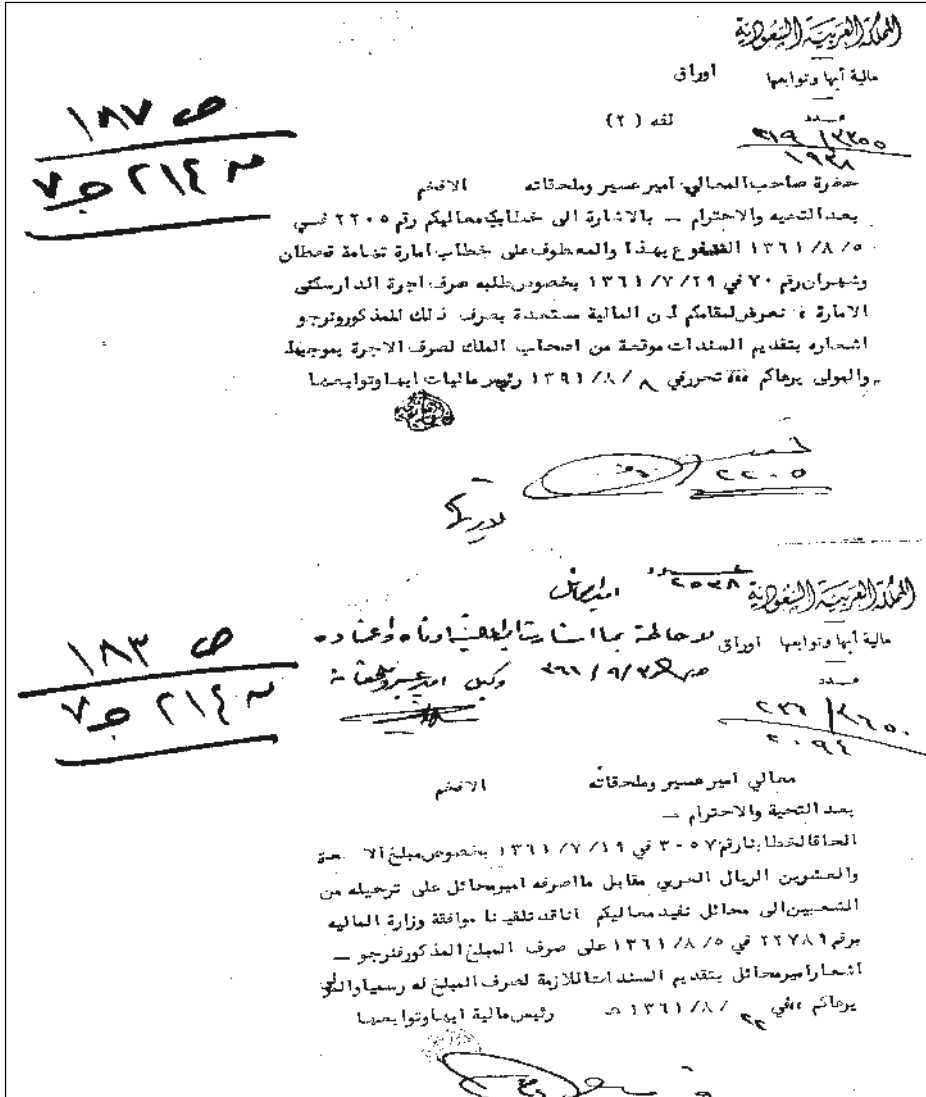 المملكة العربية السعودية
مالية أبها وتوابعها اوراق
عدد لفه ( ٢ )
٢١٩ / ٢٢٥٥
١٩٣٨
ص ١٨٧
س ٢١٤ ج ٧
حضرة صاحب المعالي امير عسير وملحقاته الافخم
بعد التحيه والاحترام ــ بالاشارة الى خطاب معاليكم رقم ٢٢٠٥ فسي
١٣٦١/٨/٥ المدفوع بهذا والمعطوف على خطاب امارة تهامة قحطان
وشهران رقم ٧٠ في ١٣٦١/٧/٢٩ بخصوص طلبه صرف اجرة الدار سكنى
الامارة نعرف لمقامكم ان المالية مستعدة بصرف ذلك للمذكور ونرجو
اشعاره بتقديم السندات موقعة من اصحاب الملك لصرف الاجرة بموجبها
والمولى يرعاكم تحرر في ٨ / ٨/ ١٣٩١ رئيس ماليات ابها وتوابعها
٢٢٠٥
عدد
٢٥٣٨
المملكة العربية السعودية
امير محائل
مالية أبها وتوابعها اوراق
للاحاطة بما اشارت اليه المالية ادناه واعتماده
٣٦١/٩/٣ وكيل امير عسير وملحقاته
عدد
٢٣٦ / ٢٦٥٠
٢٠٩٤
ص ١٨٣
س ٢١٤ ج ٧
معالي امير عسير وملحقاته الافخم
بعد التحية والاحترام ــ
الحاقا لخطابنا رقم ٣٠٥٧ في ١٣٦١/٧/١٩ بخصوص مبلغ الا
والعشرين الريال العربي مقابل ما اصرفه امير محائل على ترحيله من
الشعبين الى محائل نفيد معاليكم اننا قد تلقينا موافقة وزارة الماليه
برقم ٢٢٧٨٩ في ١٣٦١/٨/٥ على صرف المبلغ المذكور فنرجو ــ
اشعار امير محائل بتقديم السندات اللازمة لصرف المبلغ له رسميا والله
يرعاكم في ٢٢ / ٨/ ١٣٦١ هـ رئيس مالية ابها وتوابعها